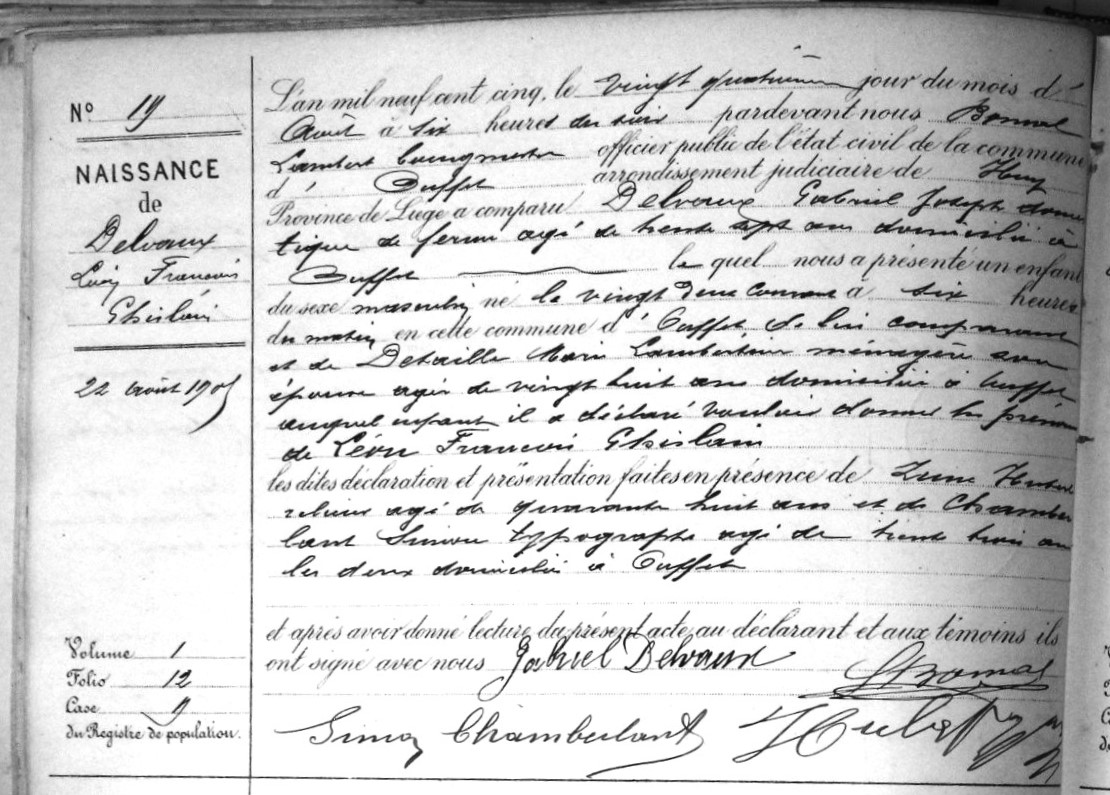 N° 19
NAISSANCE
de
Delvaux
Léon François
Ghislain
22 Août 1905
Volume 1
Folio 12
Case 9
du Registre de population.
L'an mil neuf cent cinq, le vingt quatrième jour du mois d'
Août à six heures du soir pardevant nous Bomal
Lambert bourgmestre officier public de l'état civil de la commune
d' Ouffet arrondissement judiciaire de Huy
Province de Liège a comparu Delvaux Gabriel Joseph domes
tique de ferme agé de trente sept ans domicilié à
Ouffet le quel nous a présenté un enfant
du sexe masculin né le vingt deux courant à six heures
du matin en cette commune d' Ouffet de lui comparant
et de Detaille Marie Lambertine ménagère son
épouse agée de vingt huit ans domiciliée à Ouffet
auquel enfant il a déclaré vouloir donner les prénoms
de Léon François Ghislain
les dites déclaration et présentation faites en présence de Hubert
relieur agé de quarante huit ans et de Chamber
lant Simon typographe agé de trente trois ans
les deux domiciliés à Ouffet
et après avoir donné lecture du présent acte au déclarant et aux témoins ils
ont signé avec nous Gabriel Delvaux LBomal
Simon Chamberlant Hubert